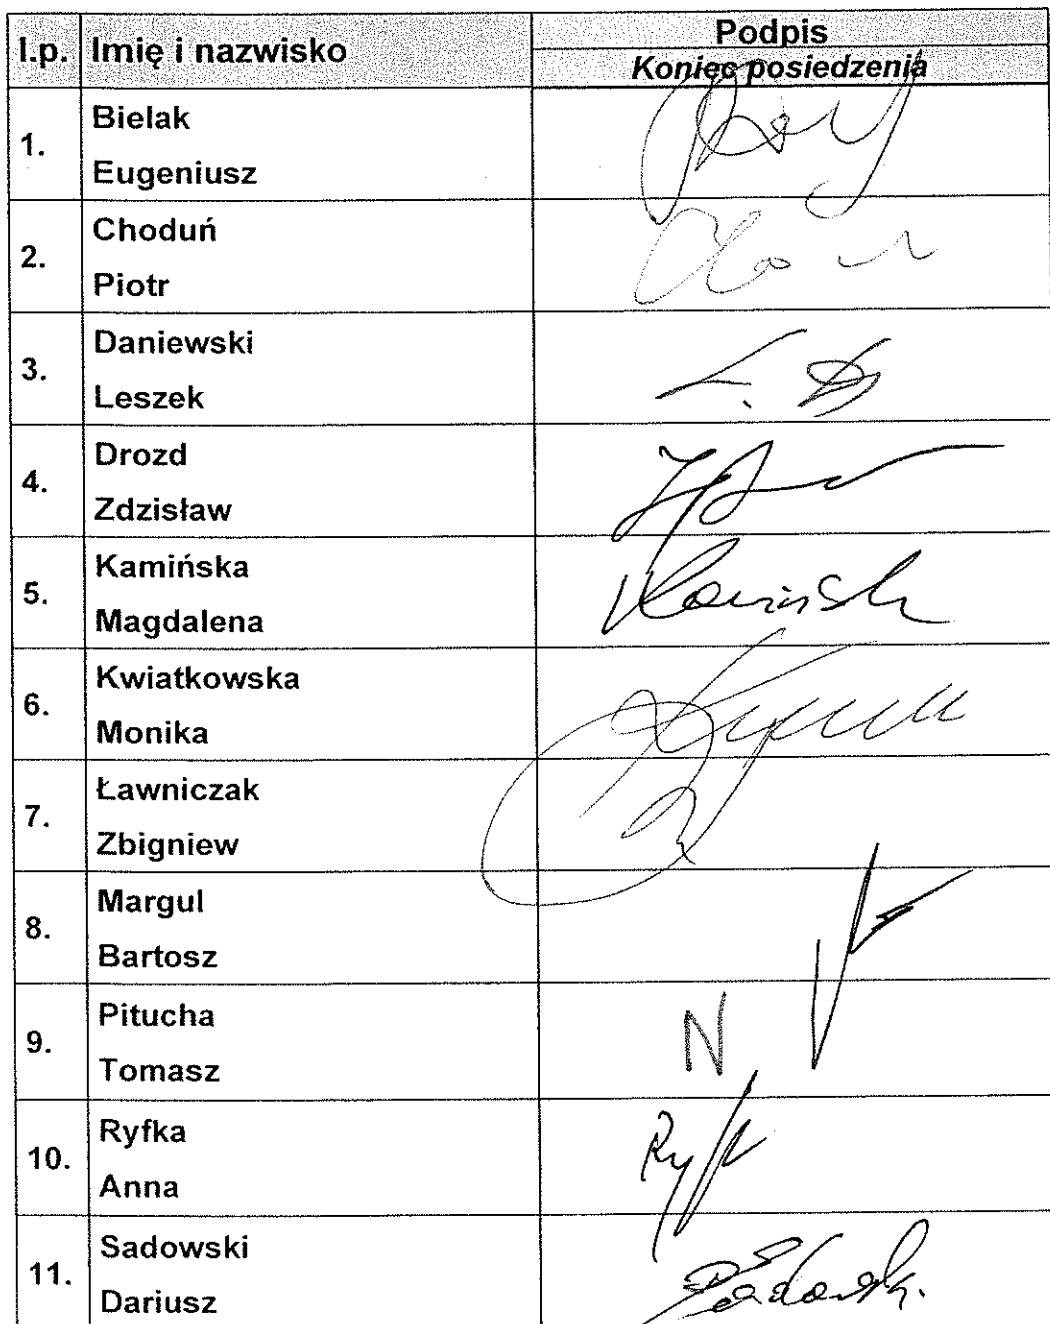 l.p. Imię i nazwisko Podpis
Koniec posiedzenia
1. Bielak
Eugeniusz
2. Choduń
Piotr
3. Daniewski
Leszek
4. Drozd
Zdzisław
5. Kamińska
Magdalena
6. Kwiatkowska
Monika
7. Ławniczak
Zbigniew
8. Margul
Bartosz
9. Pitucha
Tomasz
N
10. Ryfka
Anna
11. Sadowski
Dariusz